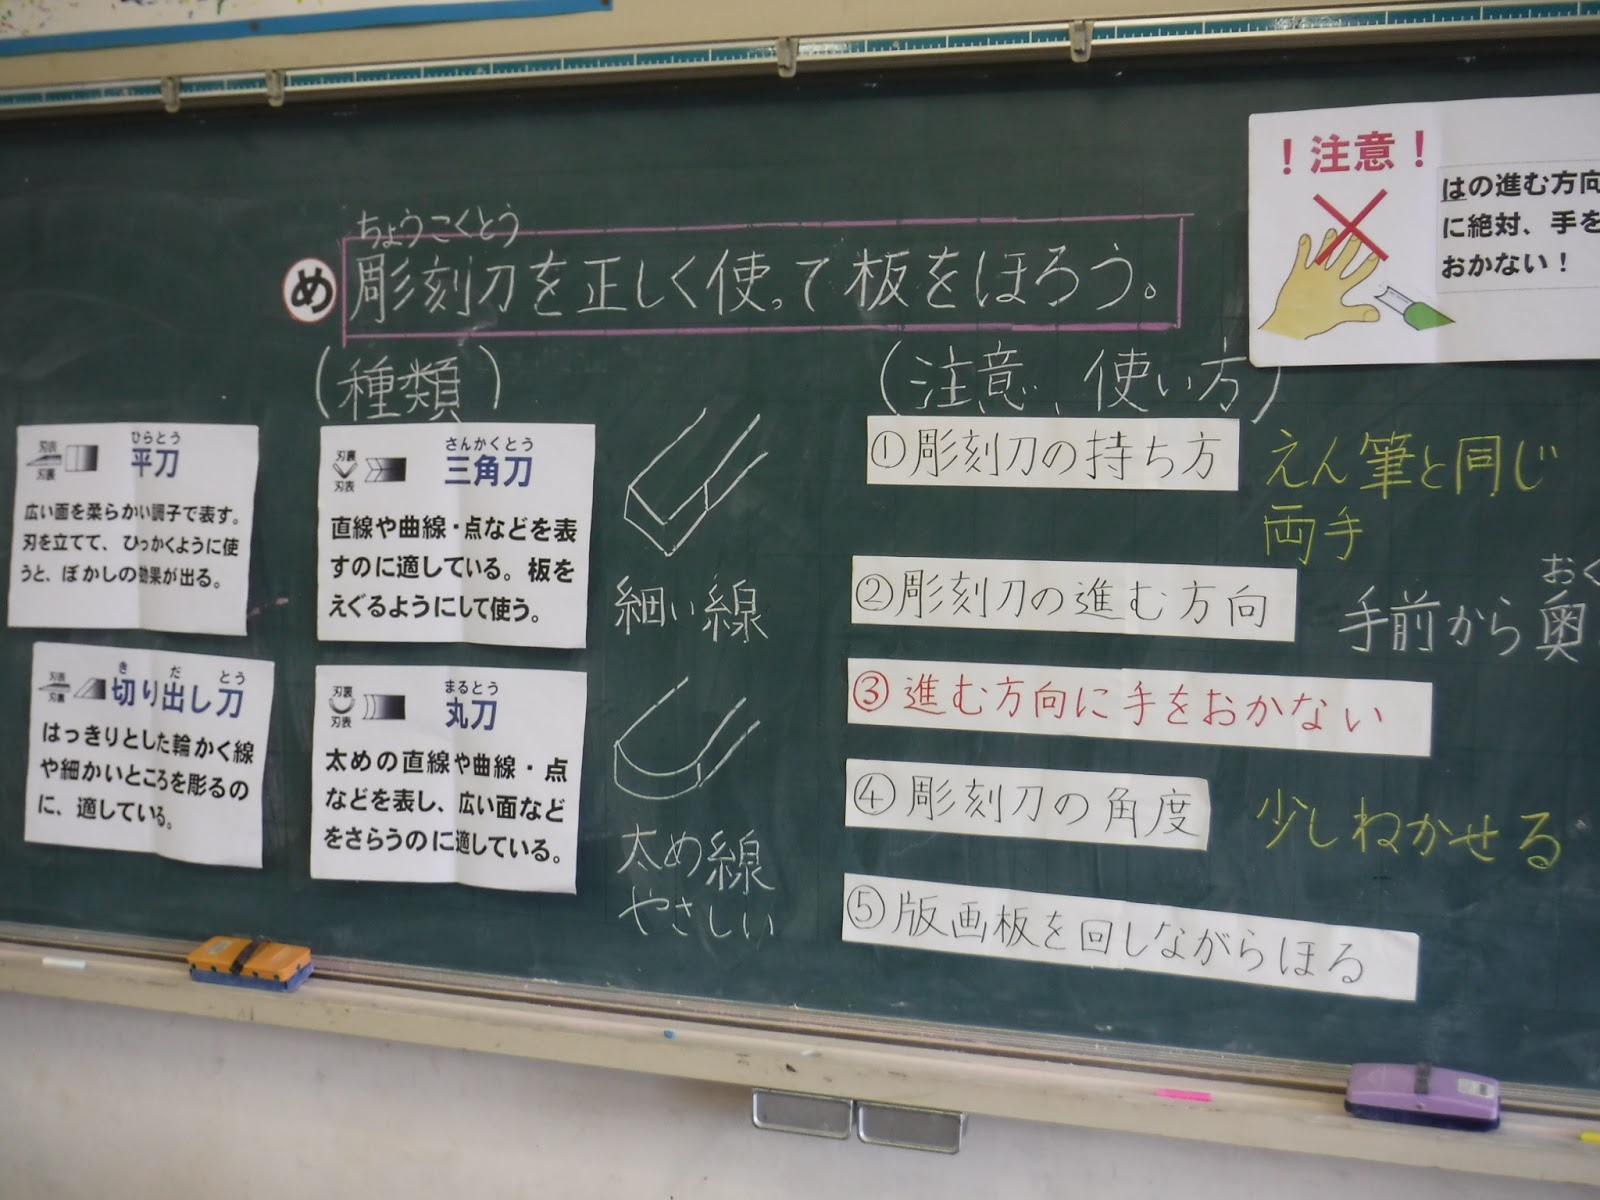 ちょうこくとう
め 彫刻刀を正しく使って板をほろう。
(種類)
刃表
刃裏
ひらとう
平刀
広い面を柔らかい調子で表す。
刃を立てて、ひっかくように使
うと、ぼかしの効果が出る。
刃裏
刃表
さんかくとう
三角刀
直線や曲線・点などを表
すのに適している。板を
えぐるようにして使う。
細い線
刃表
刃裏
き だ とう
切り出し刀
はっきりとした輪かく線
や細かいところを彫るの
に、適している。
刃裏
刃表
まるとう
丸刀
太めの直線や曲線・点
などを表し、広い面など
をさらうのに適している。
太め線
やさしい
(注意、使い方)
①彫刻刀の持ち方
えん筆と同じ
両手
②彫刻刀の進む方向
おく
手前から奥
③進む方向に手をおかない
④彫刻刀の角度
少しねかせる
⑤版画板を回しながらほる
!注意!
はの進む方向
に絶対、手を
おかない!